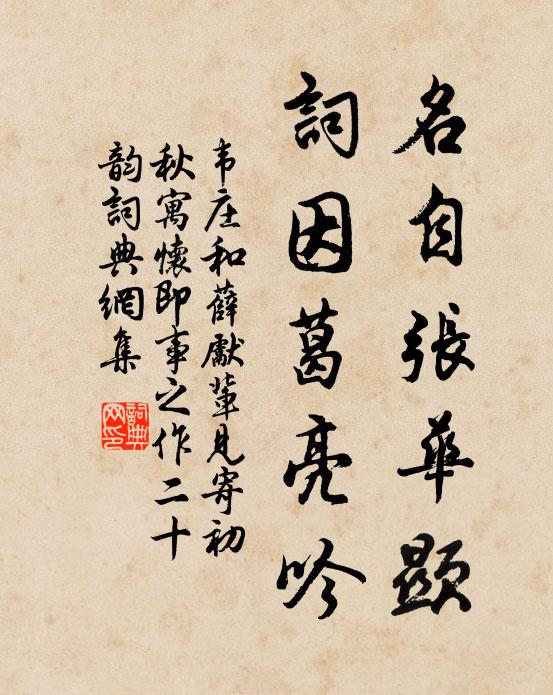 名自張華顯
詞因葛亮吟
韦庄和薛獻輩見寄初
秋寓懷即事之作二十
韵詞典網集
詞典网印